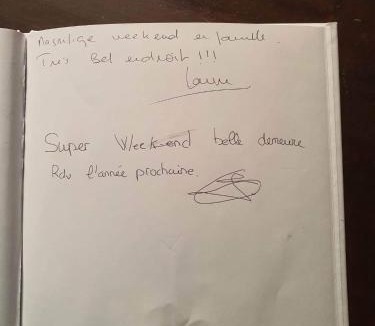 Magnifige weekend en famille.
Très Bel endroit !!!
Super Weekend belle demeure
Rdv l'année prochaine.